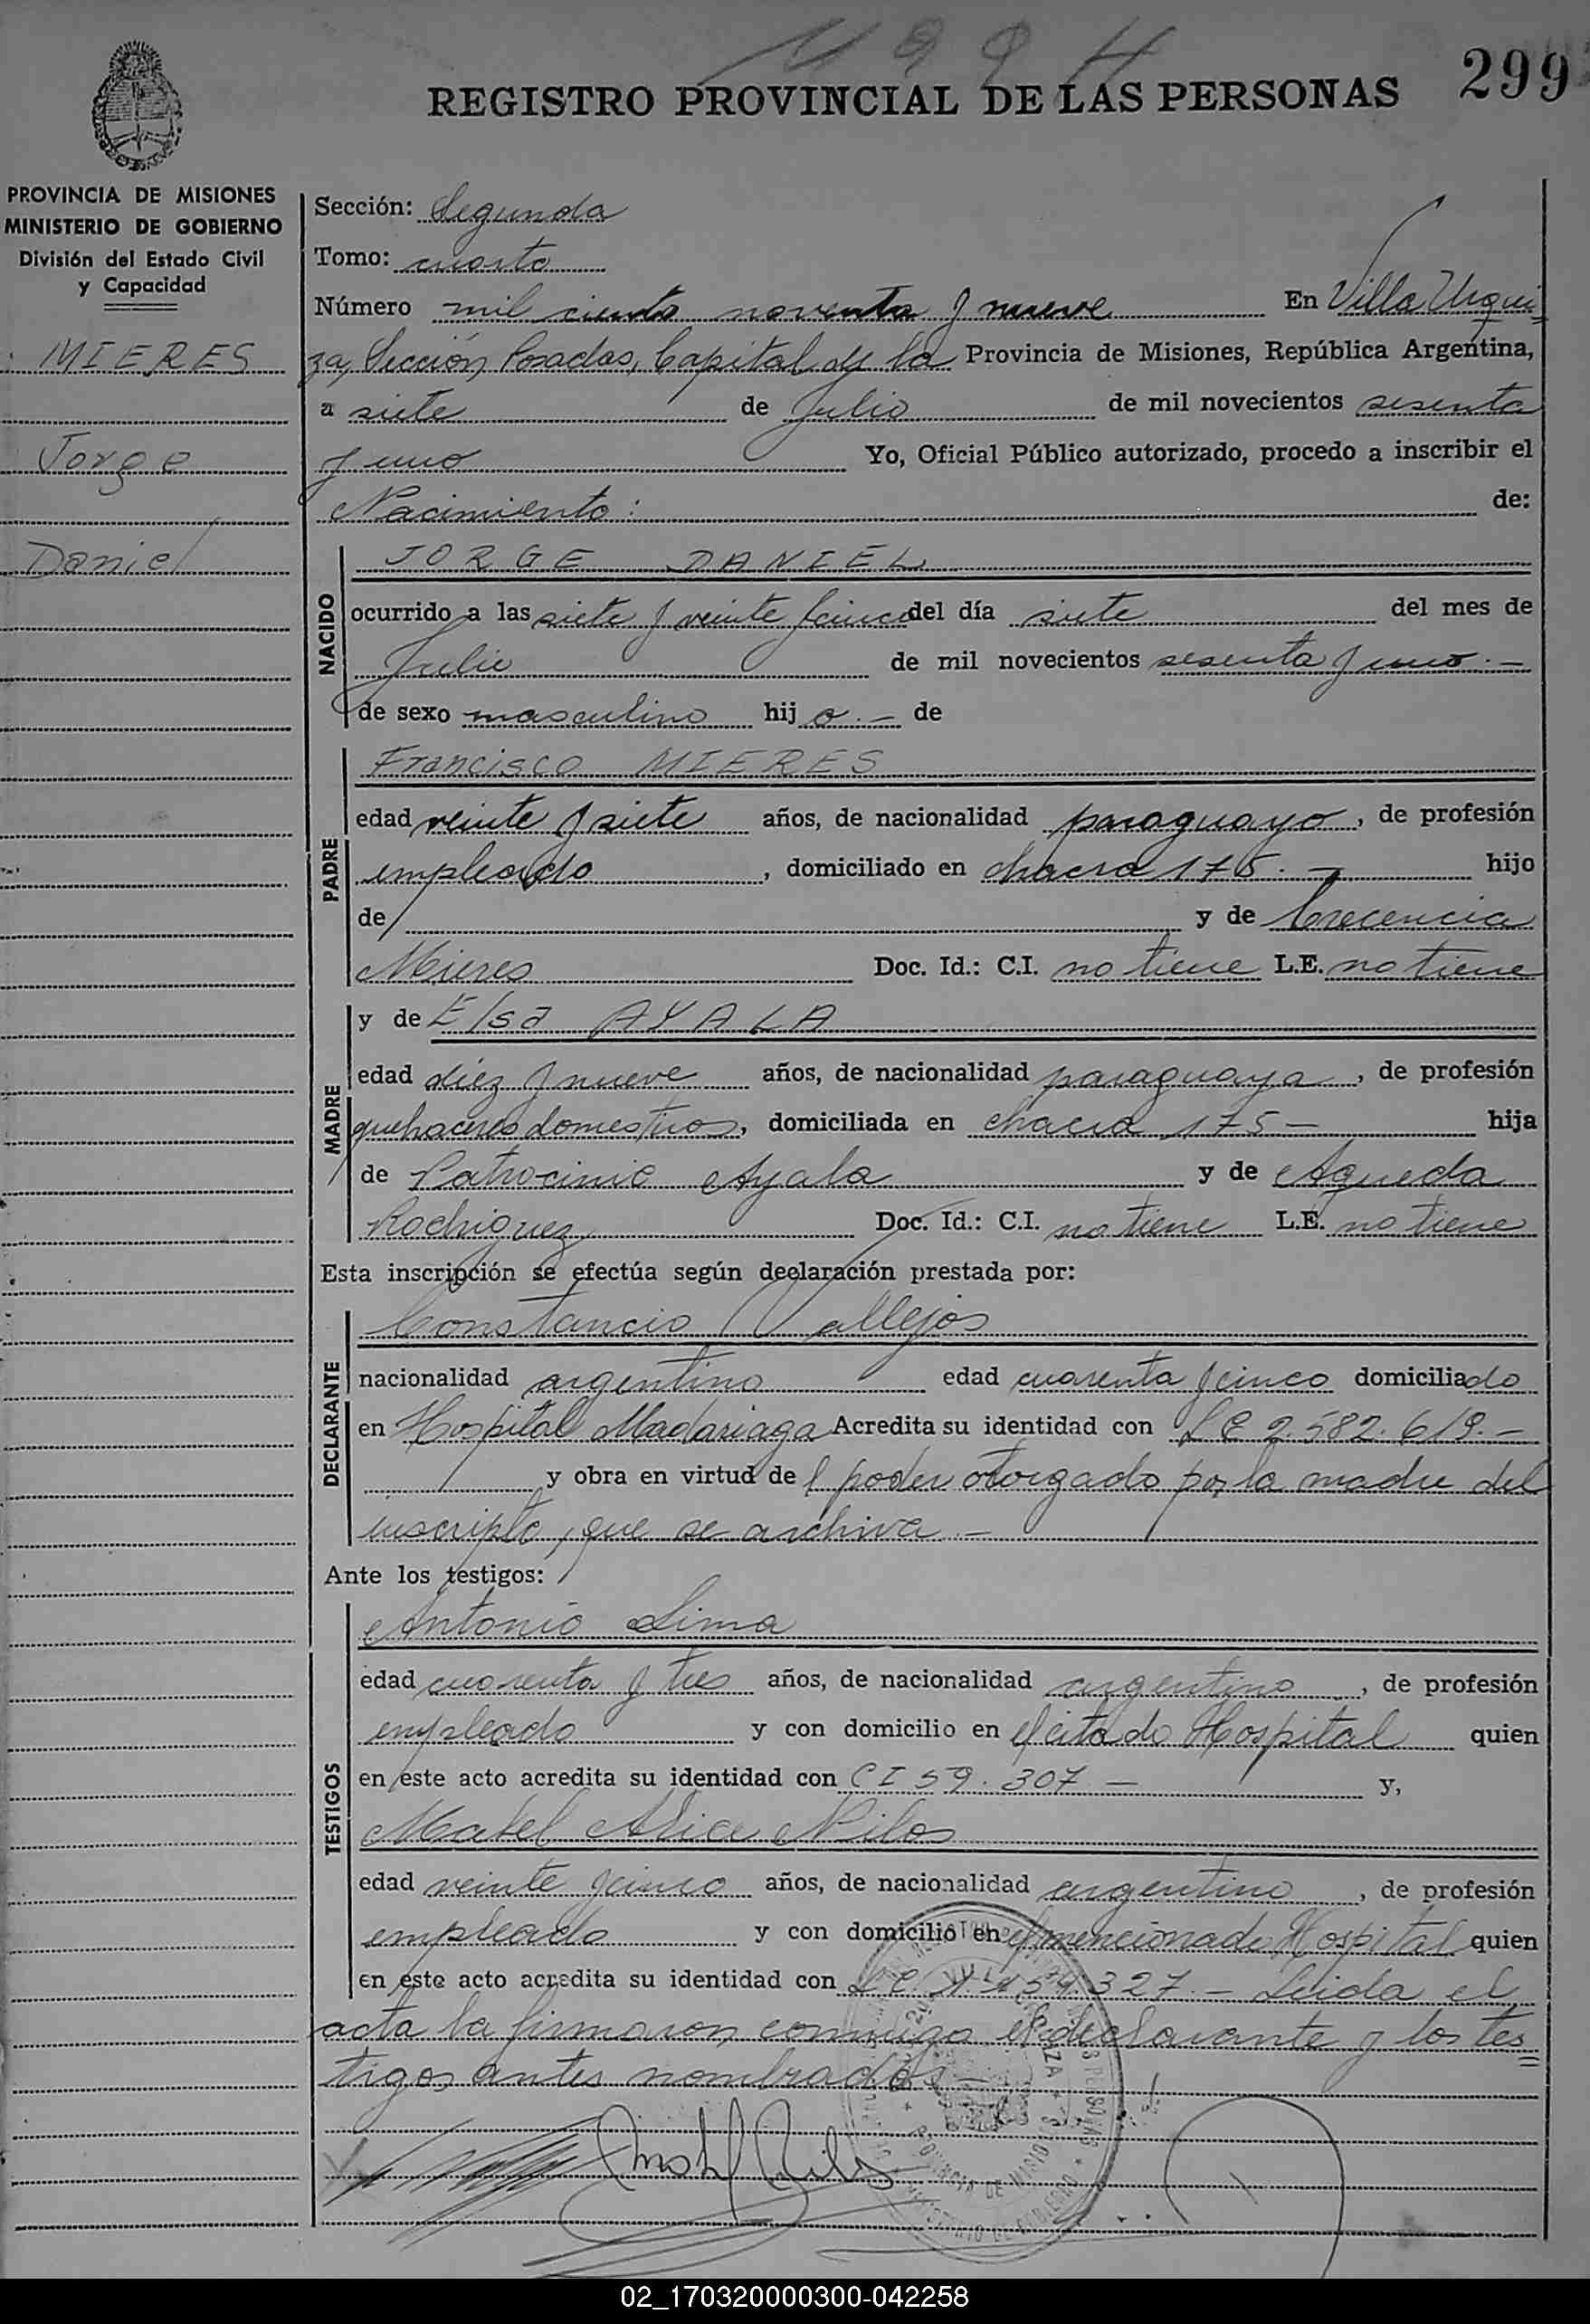 299
REGISTRO PROVINCIAL DE LAS PERSONAS
PROVINCIA DE MISIONES
MINISTERIO DE GOBIERNO
División del Estado Civil
y Capacidad
MIERES
Jorge
Daniel
Sección: Segunda
Tomo: cuarto
Número mil ciento noventa y nueve En Villa Urqui=
za, Sección Posadas, Capital de la Provincia de Misiones, República Argentina,
a siete de Julio de mil novecientos sesenta
y uno Yo, Oficial Público autorizado, procedo a inscribir el
Nacimiento: de:
NACIDO
JORGE DANIEL
ocurrido a las siete y veinte y cinco del día siete del mes de
Julio de mil novecientos sesenta y uno.-
de sexo masculino hij o.- de
PADRE
Francisco MIERES
edad veinte y siete años, de nacionalidad paraguayo, de profesión
empleado, domiciliado en chacra 175.- hijo
de y de Crecencia
Mieres Doc. Id.: C.I. no tiene L.E. no tiene
MADRE
y de Elsa AYALA
edad diez y nueve años, de nacionalidad paraguaya, de profesión
quehaceres domesticos, domiciliada en chacra 175- hija
de Patrocinio Ayala y de Agueda
Rodriguez Doc. Id.: C.I. no tiene L.E. no tiene
Esta inscripción se efectúa según declaración prestada por:
DECLARANTE
Constancio Vallejos
nacionalidad argentino edad cuarenta y cinco domiciliado
en Hospital Madariaga Acredita su identidad con L E 2.582.619.-
y obra en virtud de l poder otorgado por la madre del
inscripto, que se archiva.-
Ante los testigos:
TESTIGOS
Antonio Lima
edad cuarenta y tres años, de nacionalidad argentino, de profesión
empleado y con domicilio en el citado Hospital quien
en este acto acredita su identidad con C I 59.307 - y,
Mabel Alice
edad veinte y cinco años, de nacionalidad argentino, de profesión
empleado y con domicilio en el mencionado Hospital quien
en este acto acredita su identidad con 327.- Leida el
acta la firmaron conmigo el declarante y los tes=
tigos antes nombrados.-
02_170320000300-042258